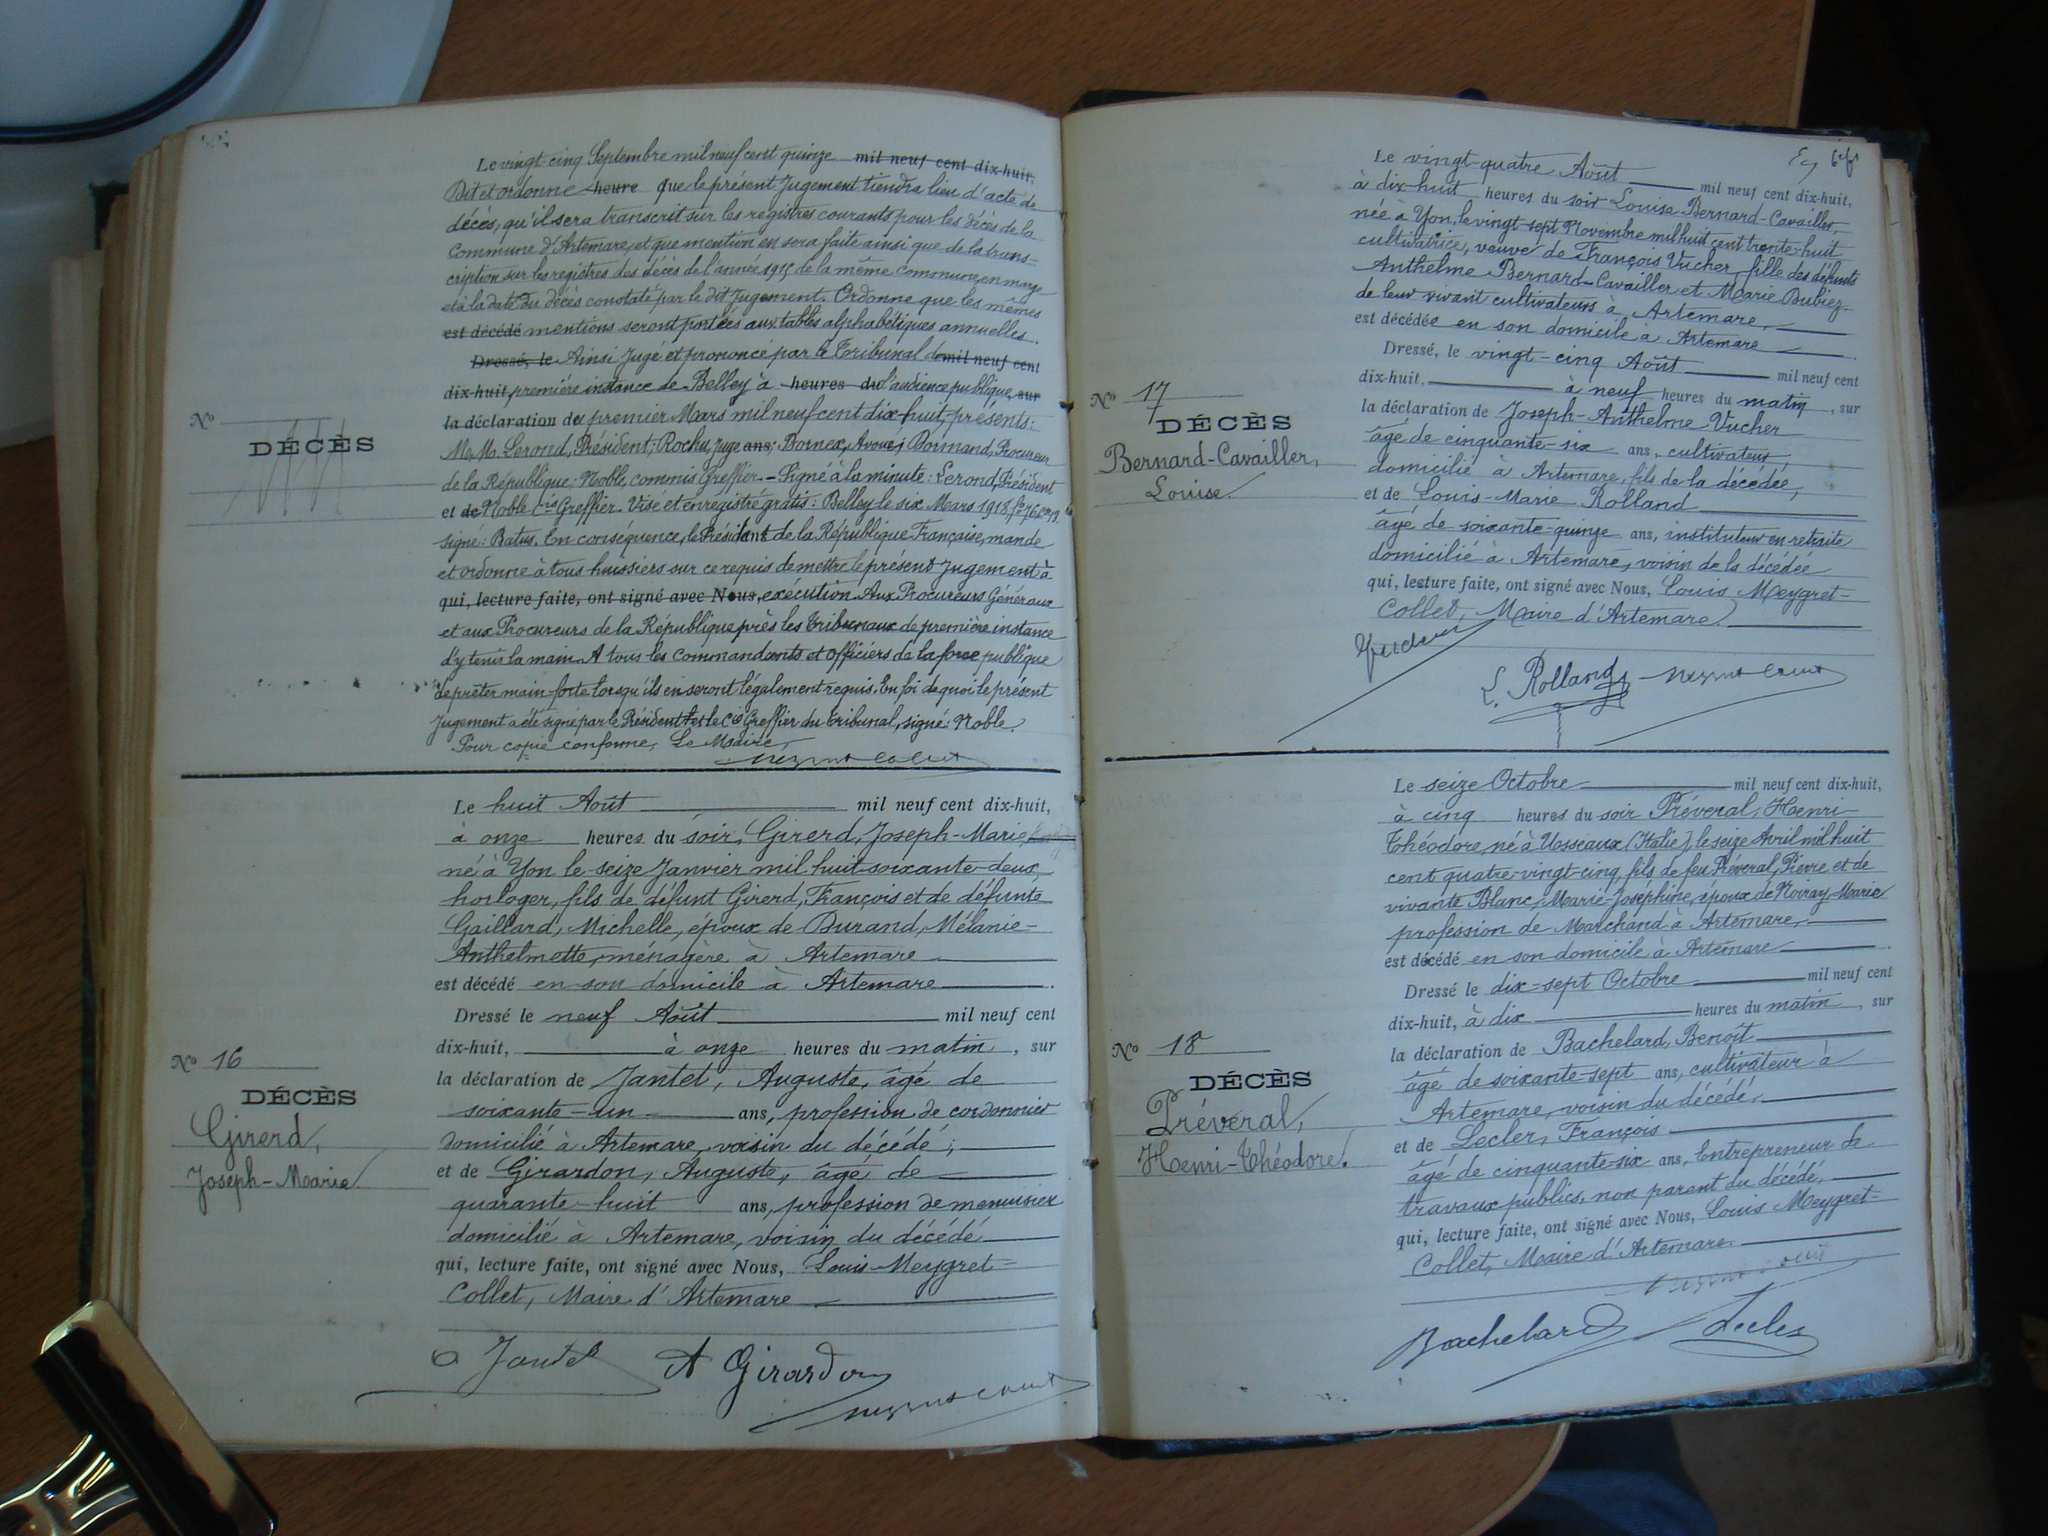 Le vingt cinq Septembre mil neuf cent quinze mil neuf cent dix-huit,
Dit et ordonne heure que le présent Jugement tiendra lieu d'acte de
décès, qu'il sera transcrit sur les registres courants pour les décès de la
Commune d'Artemare, et que mention en sera faite ainsi que de la trans-
cription sur les registres des décès de l'année 1915 de la même commune, en marge
et à la date du décès constaté par le dit Jugement. Ordonne que les mêmes
est décédé mentions seront portées aux tables alphabétiques annuelles.
Dressé, le Ainsi Jugé et prononcé par le Tribunal de mil neuf cent
dix-huit, première instance de Belley à heures du l'audience publique, sur
la déclaration de premier Mars mil neuf cent dix-huit, présents:
No
DÉCÈS
M.M. Lerond, Président; Rochu, juge ans; Bornex, Avoué; Doinand, Procureur
de la République; Noble, commis Greffier. - Signé à la minute: Lerond, Président
et de Noble Cis Greffier. Visé et enregistré gratis: Belley le six Mars 1918,
signé: Batus. En conséquence, le Président de la République Française, mande
et ordonne à tous huissiers sur ce requis de mettre le présent Jugement à
qui, lecture faite, ont signé avec Nous, exécution. Aux Procureurs Généraux
et aux Procureurs de la République près les Tribunaux de première instance
d'y tenir la main. A tous les Commandants et Officiers de la force publique
de prêter main-forte lorsqu'ils en seront légalement requis. En foi de quoi le présent
Jugement a été signé par le Président et le Cis Greffier du Tribunal, signé: Noble.
Pour copie conforme, Le Maire,
Le huit Août mil neuf cent dix-huit,
à onze heures du soir, Girerd, Joseph-Marie,
né à Yon le seize Janvier mil huit soixante-deux,
horloger, fils de défunt Girerd, François et de défunte
Gaillard, Michelle, époux de Durand, Mélanie-
Anthelmette, ménagère à Artemare
est décédé en son domicile à Artemare
Dressé le neuf Août mil neuf cent
dix-huit, à onze heures du matin, sur
No 16
DÉCÈS
Girerd,
Joseph-Marie
la déclaration de Jantet, Auguste, âgé de
soixante-un ans, profession de cordonnier
domicilié à Artemare, voisin du décédé;
et de Girardon, Auguste, âgé de
quarante-huit ans, profession de menuisier
domicilié à Artemare, voisin du décédé
qui, lecture faite, ont signé avec Nous, Louis Meygret-
Collet, Maire d'Artemare
Jantet A Girardon
Le vingt-quatre Août mil neuf cent dix-huit,
à dix-huit heures du soir Louise Bernard-Cavailler,
née à Yon, le vingt-sept Novembre mil huit cent trente-huit
cultivatrice, veuve de François Vucher, fille des défunts
Anthelme Bernard-Cavailler et Marie Bubiez
de leur vivant cultivateurs à Artemare,
est décédée en son domicile à Artemare
Dressé, le vingt-cinq Août mil neuf cent
dix-huit, à neuf heures du matin, sur
No 17
DÉCÈS
Bernard-Cavailler,
Louise
la déclaration de Joseph-Anthelme Vucher
âgé de cinquante-six ans, cultivateur
domicilié à Artemare, fils de la décédée,
et de Louis-Marie Rolland
âgé de soixante-quinze ans, instituteur en retraite
domicilié à Artemare, voisin de la décédée
qui, lecture faite, ont signé avec Nous, Louis Meygret-
Collet, Maire d'Artemare
Vucher L. Rolland
Le seize Octobre mil neuf cent dix-huit,
à cinq heures du soir Préveral, Henri-
Théodore, né à Usseaux (Italie), le seize Avril mil huit
cent quatre-vingt-cinq, fils de feu Préveral, Pierre et de
vivante Blanc, Marie-Joséphine, époux de Noiray, Marie
profession de Marchand à Artemare,
est décédé en son domicile à Artemare
Dressé le dix-sept Octobre mil neuf cent
dix-huit, à dix heures du matin, sur
No 18
DÉCÈS
Préveral,
Henri-Théodore.
la déclaration de Bachelard, Benoît
âgé de soixante-sept ans, cultivateur à
Artemare, voisin du décédé,
et de Lecler, François
âgé de cinquante-six ans, Entrepreneur de
travaux publics, non parent du décédé,
qui, lecture faite, ont signé avec Nous, Louis Meygret-
Collet, Maire d'Artemare
Bachelard Lecler